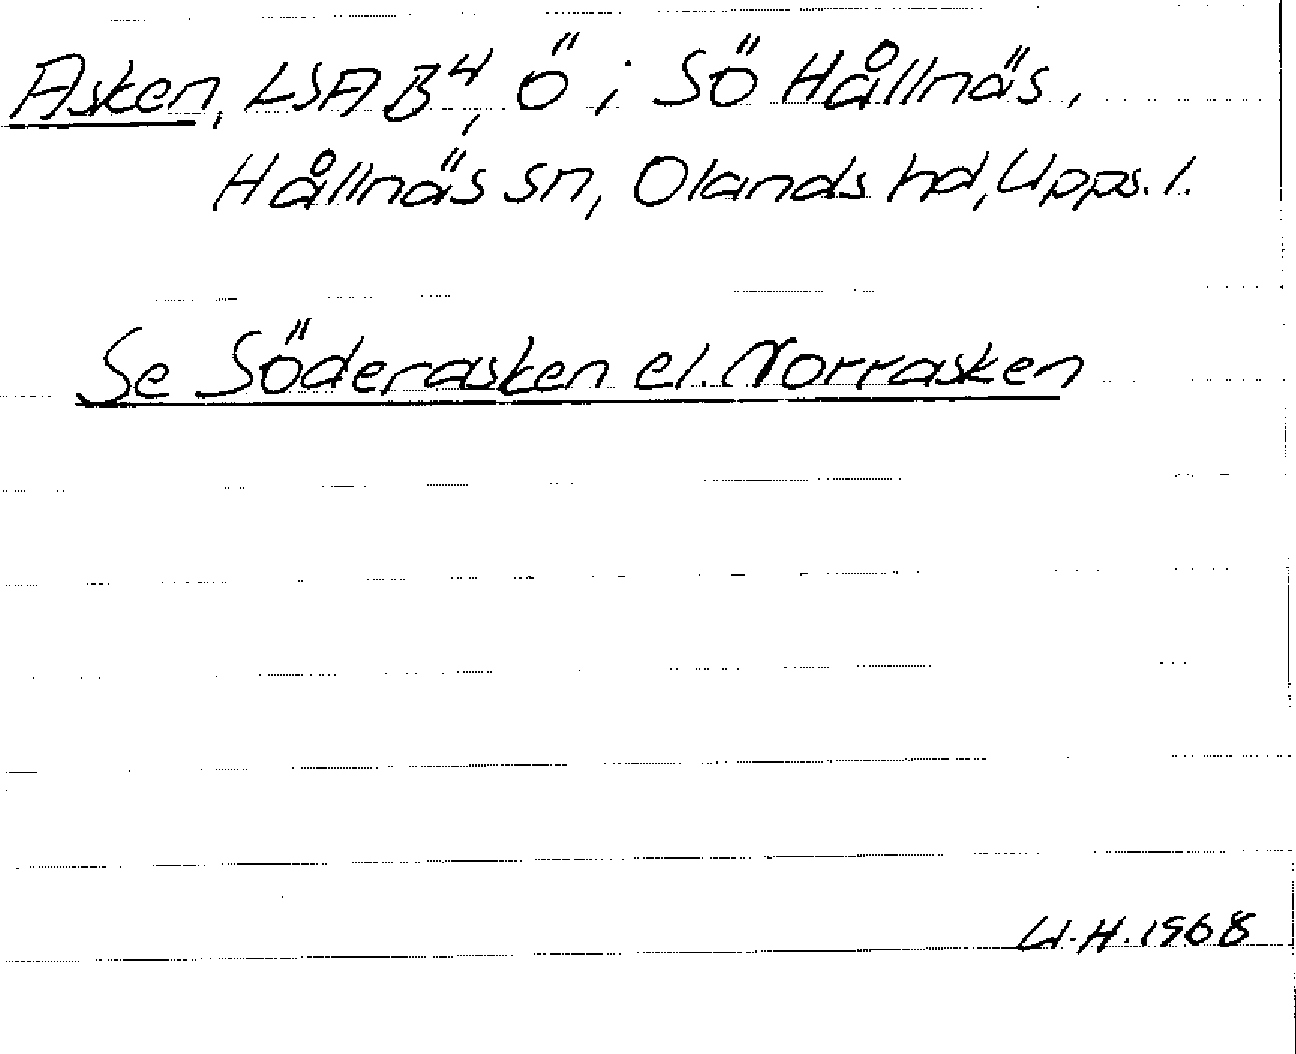 Asken, LSA B4, ö i SÖ Hållnäs,
Hållnäs sn, Olands hd, Upps. l.
Se Söderasken el. Norrasken
U.H. 1968